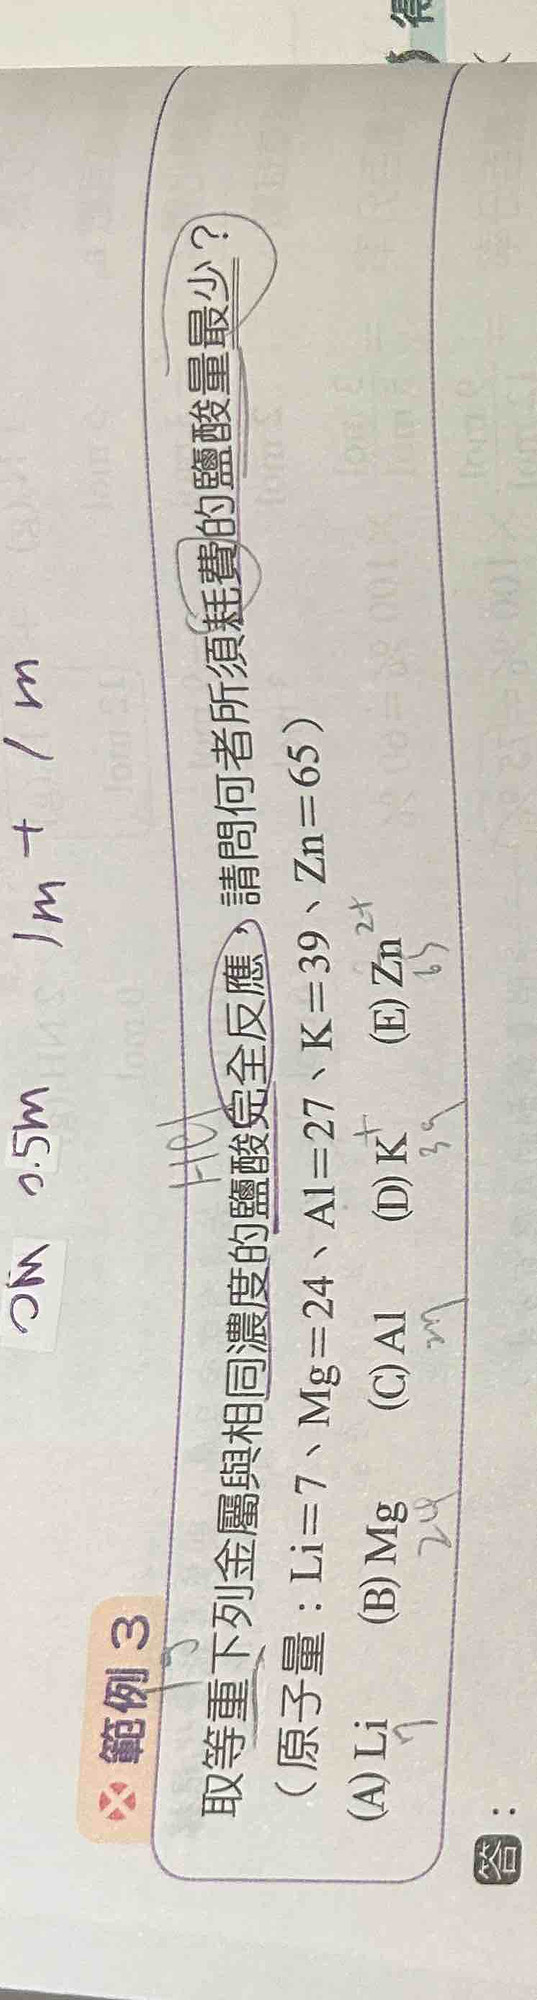 0m 0.5m 1m + / m
範例 3
HCl
取等重下列金屬與相同濃度的鹽酸完全反應，請問何者所須耗費的鹽酸量最少？
（原子量：Li＝7、Mg＝24、Al＝27、K＝39、Zn＝65）
(A) Li (B) Mg (C) Al (D) K⁺ (E) Zn²⁺
7 24 27 39 65
答：